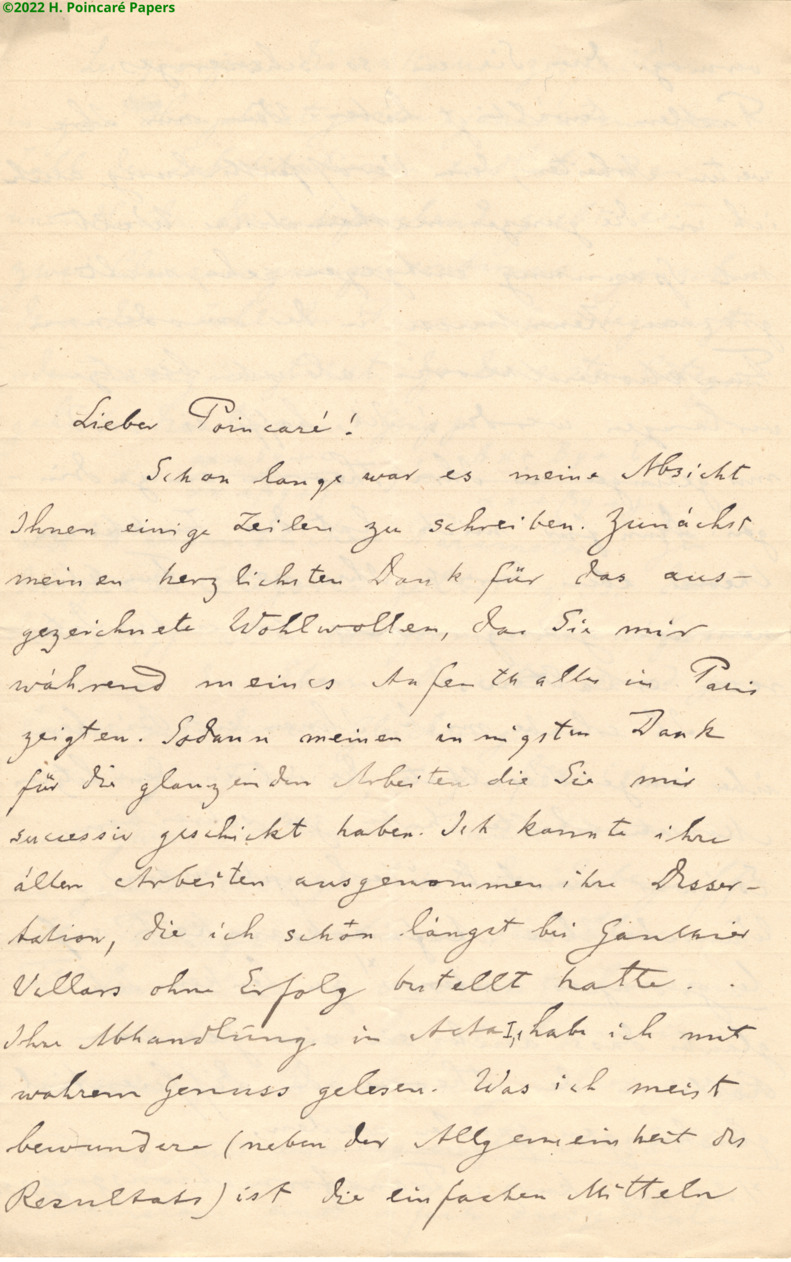 ©2022 H. Poincaré Papers
Lieber Poincaré!
Schon lange war es meine Absicht
Ihnen einige Zeilen zu schreiben. Zunächst
meinen herzlichsten Dank für das aus-
gezeichnete Wohlwollen, das Sie mir
während meines Aufenthaltes in Paris
zeigten. Sodann meinen innigsten Dank
für die glanzenden Arbeiten die Sie mir
successiv geschickt haben. Ich kannte ihre
ällen Arbeiten ausgenommen ihre Disser-
tation, die ich schon längst bei Gauthier
Villars ohne Erfolg bestellt hatte.
Ihre Abhandlung in Acta I, habe ich mit
wahrem Genuss gelesen. Was ich meist
bewundere (neben der Allgemeinheit des
Resultats) ist die einfachen Mitteln